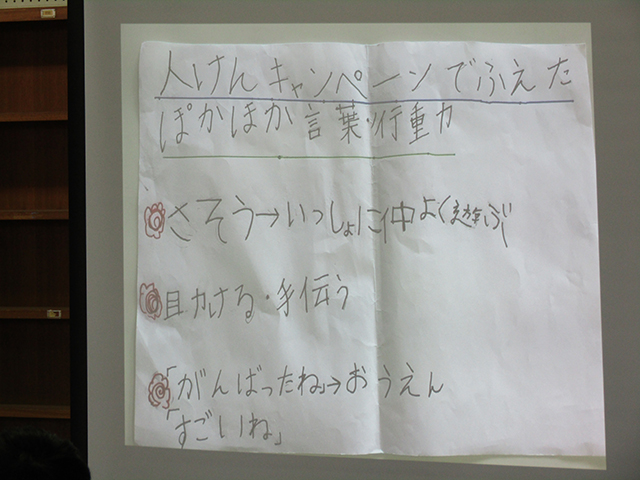 人けんキャンペーンでふえた
ぽかほか言葉・行動
さそう→いっしょに仲よく遊ぶ
目かける・手伝う
「がんばったね」→おうえん
「すごいね」